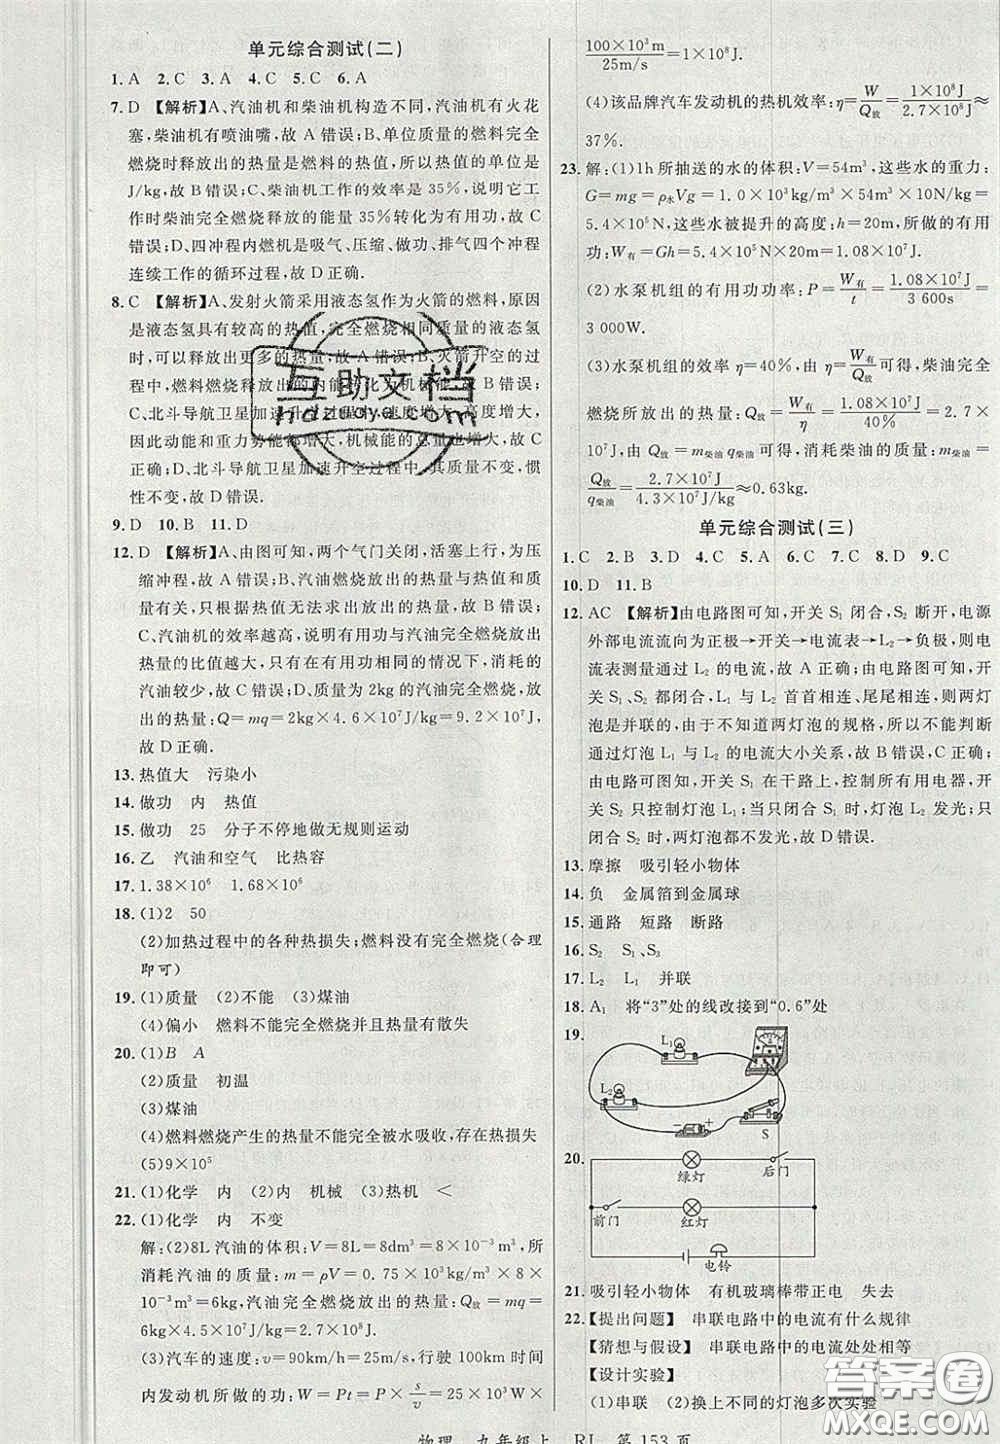 单元综合测试(二)
1. A  2. C  3. A  4. C  5. C  6. A
7. D 【解析】A、汽油机和柴油机构造不同,汽油机有火花
塞,柴油机有喷油嘴,故 A 错误;B、单位质量的燃料完全
燃烧时释放出的热量是燃料的热值,所以热值的单位是
J/kg,故 B 错误;C、柴油机工作的效率是 35%,说明它工
作时柴油完全燃烧释放的能量 35%转化为有用功,故 C
错误;D、四冲程内燃机是吸气、压缩、做功、排气四个冲程
连续工作的循环过程,故 D 正确.
8. C 【解析】A、发射火箭采用液态氢作为火箭的燃料,原因
是液态氢具有较高的热值,完全燃烧相同质量的液态氢
时,可以释放出更多的热量;故 A 错误;B、火箭升空的过
程中,燃料燃烧放出的内能转化为机械能,故 B 错误;
C、北斗导航卫星加速升空过程中,速度增大,高度增大,
因此动能和重力势能都增大,机械能的总量也增大,故 C 正确;
D、北斗导航卫星加速升空过程中,其质量不变,惯
性不变,故 D 错误.
9. D  10. B  11. D
12. D 【解析】A、由图可知,两个气门关闭,活塞上行,为压
缩冲程,故 A 错误;B、汽油燃烧放出的热量与质量和热值
有关,只根据热值无法求出放出的热量,故 B 错误;
C、汽油机的效率越高,说明有用功与汽油完全燃烧放出
热量的比值越大,则在有用功相同的情况下,消耗的
汽油较少,故 C 错误;D、质量为 2kg 的汽油完全燃烧,放
出的热量:Q=mq=2kg×4.6×10⁷J/kg=9.2×10⁷J,
故 D 正确.
13. 热值大  污染小
14. 做功  内  热值
15. 做功  25  分子不停地做无规则运动
16. 乙  汽油和空气  比热容
17. 1.38×10⁶  1.68×10⁶
18. (1)2  50
(2)加热过程中的各种热损失;燃料没有完全燃烧(合理
即可)
19. (1)质量  (2)不能  (3)煤油
(4)偏小  燃料不能完全燃烧并且热量有散失
20. (1)B  A
(2)质量  初温
(3)煤油
(4)燃料燃烧产生的热量不能完全被水吸收,存在热损失
(5)9×10⁵
21. (1)化学  内  (2)内  机械  (3)热机  <
22. (1)化学  内  不变
解:(2)8L 汽油的体积:V=8L=8dm³=8×10⁻³m³,所
消耗汽油的质量:m=ρV=0.75×10³kg/m³×8×
10⁻³m³=6kg,汽油完全燃烧放出的热量:Q放=mq=
6kg×4.5×10⁷J/kg=2.7×10⁸J.
(3)汽车的速度:v=90km/h=25m/s,行驶 100km 时间
内发动机所做的功:W=Pt=P×s/v=25×10³W×
100×10³m/25m/s=1×10⁸J.
(4)该品牌汽车发动机的热机效率:η=W/Q放=1×10⁸J/2.7×10⁸J≈
37%.
23. 解:(1)1h 所抽送的水的体积:V=54m³,这些水的重力:
G=mg=ρ水Vg=1.0×10³kg/m³×54m³×10N/kg=
5.4×10⁵N,这些水被提升的高度:h=20m,所做的有用
功:W有=Gh=5.4×10⁵N×20m=1.08×10⁷J.
(2)水泵机组的有用功功率:P=W有/t=1.08×10⁷J/3 600s=
3 000W.
(3)水泵机组的效率 η=40%,由 η=W有/Q放可得,柴油完全
燃烧所放出的热量:Q放=W有/η=1.08×10⁷J/40%=2.7×
10⁷J,由 Q放=m柴油q柴油可得,消耗柴油的质量:m柴油=
Q放/q柴油=2.7×10⁷J/4.3×10⁷J/kg≈0.63kg.
单元综合测试(三)
1. C  2. B  3. D  4. C  5. A  6. C  7. C  8. D  9. C
10. D  11. B
12. AC 【解析】由电路图可知,开关 S₁ 闭合,S₂ 断开,电源
外部电流流向为正极→开关→电流表→L₂→负极,则电
流表测量通过 L₂ 的电流,故 A 正确;由电路图可知,开
关 S₁、S₂ 都闭合,L₁ 与 L₂ 首首相连、尾尾相连,则两灯
泡是并联的,由于不知道两灯泡的规格,所以不能判断
通过灯泡 L₁ 与 L₂ 的电流大小关系,故 B 错误,C 正确;
由电路可图知,开关 S₁ 在干路上,控制所有用电器,开关
S₂ 只控制灯泡 L₁;当只闭合 S₁ 时,灯泡 L₂ 发光;当只
闭合 S₂ 时,两灯泡都不发光,故 D 错误.
13. 摩擦  吸引轻小物体
14. 负  金属箔到金属球
15. 通路  短路  断路
16. S₂  S₁、S₃
17. L₂  L₁  并联
18. A₁  将“3”处的线改接到“0.6”处
19.
L₁
L₂
− +
S
20.
绿灯  后门
前门  红灯
电铃
21. 吸引轻小物体  有机玻璃棒带正电  失去
22. 【提出问题】  串联电路中的电流有什么规律
【猜想与假设】  串联电路中的电流处处相等
【设计实验】
(1)串联  (2)换上不同的灯泡多次实验
物理  九年级上  RJ  第 153 页
互助文档
hdzuoye.com
答案圈
MXQE.COM